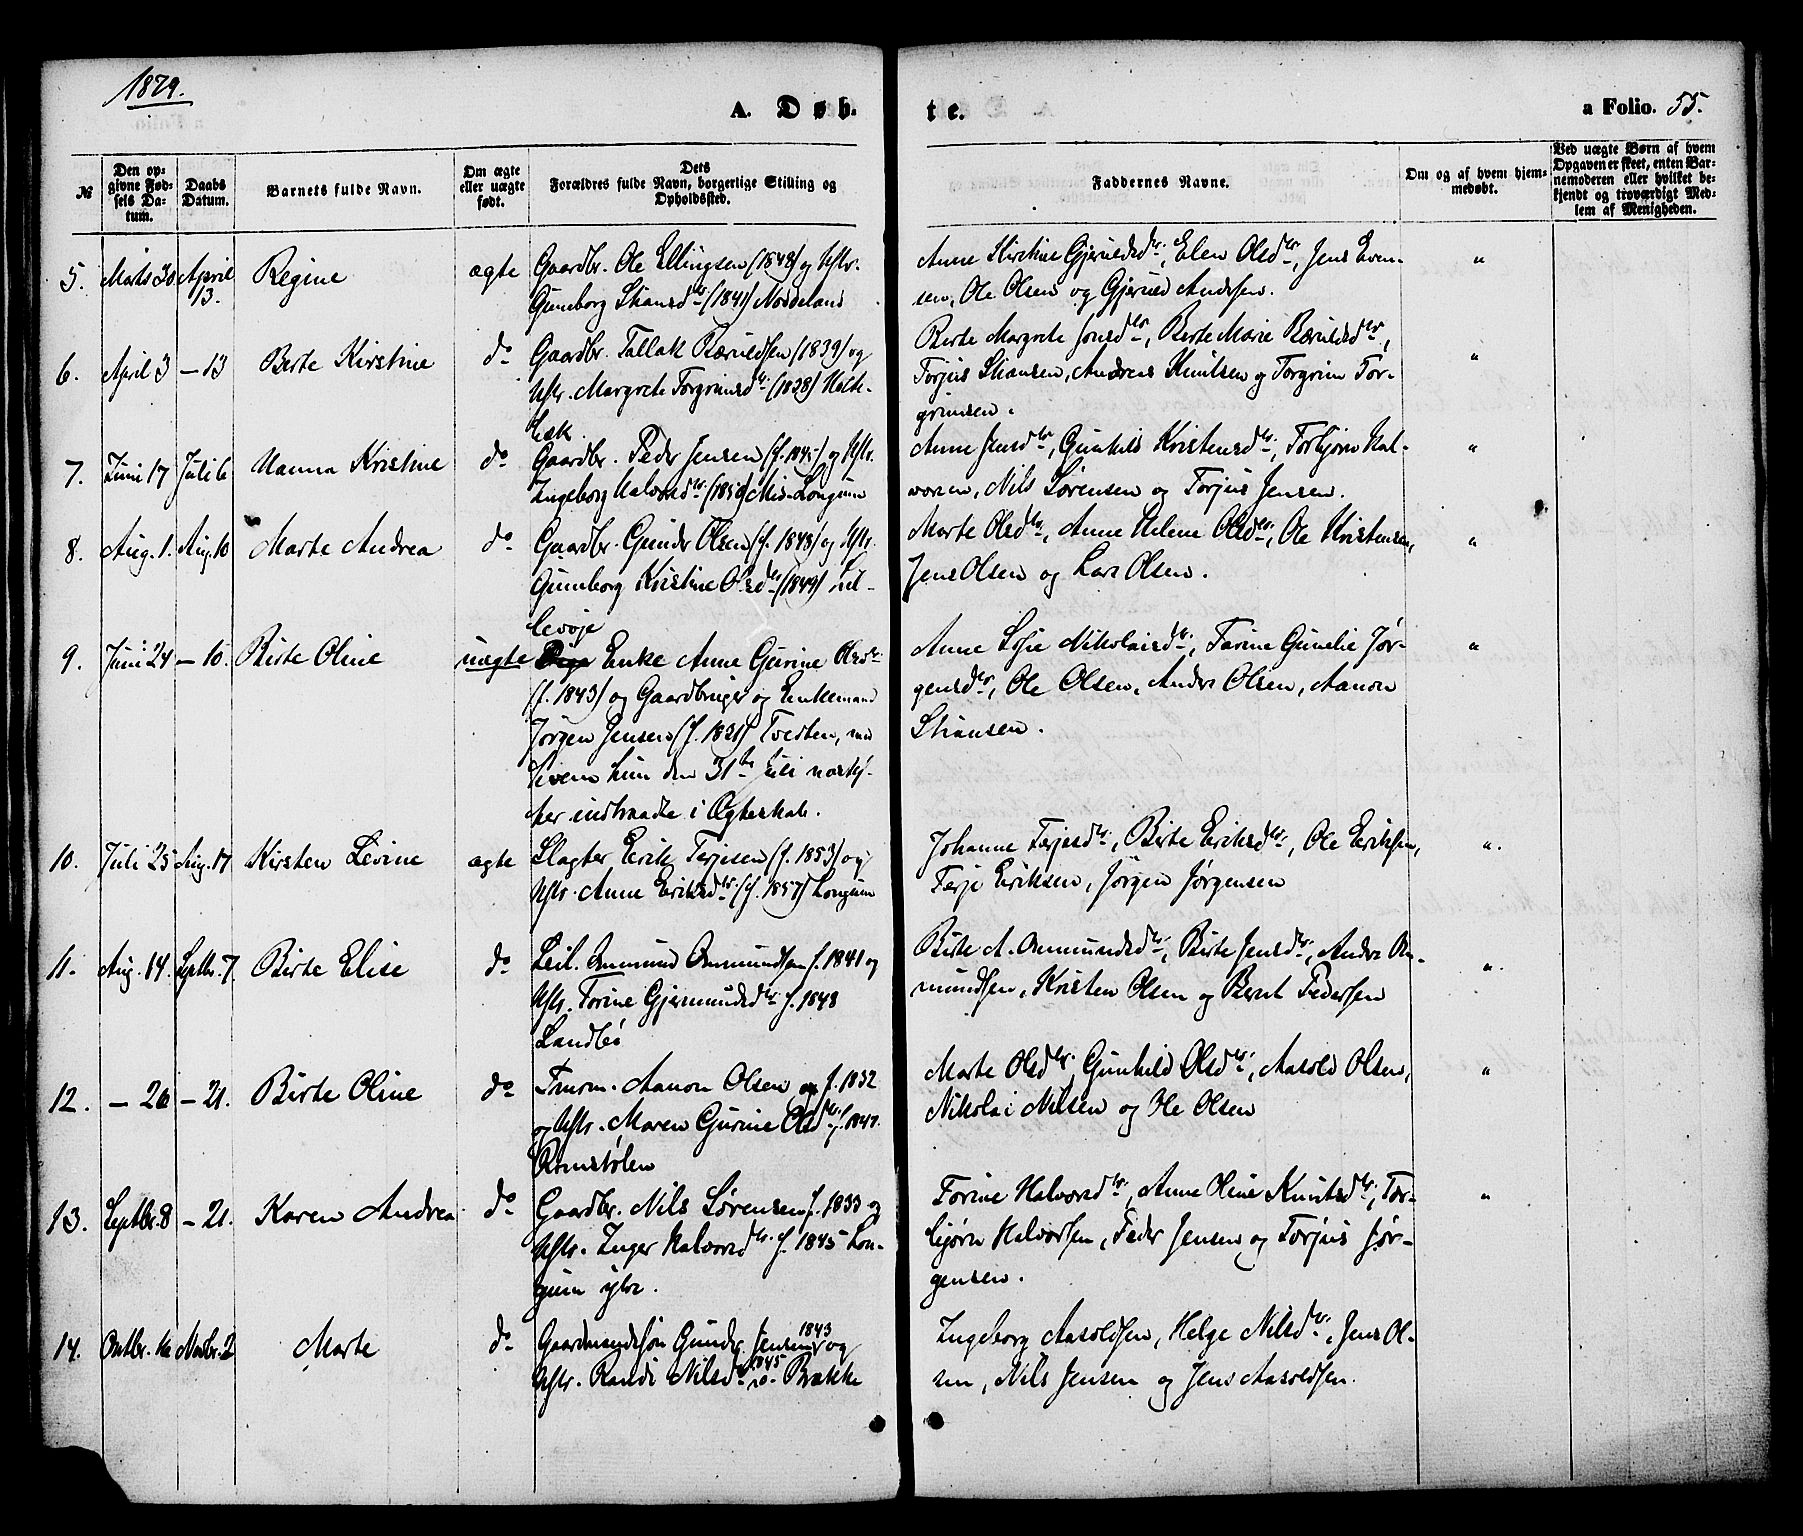 1879.
A. Døb-
te.
a Folio. 55.
№
Den op-
givne Fød-
sels Da-
tum.
Daabs
Datum.
Barnets fulde Navn.
Om ægte
eller uægte
født.
Dets
Forældres fulde Navn, borgerlige Stilling og
Opholdssted.
Faddernes Navne.
Om og af hvem hjem-
medøbt.
Ved uægte Børn af hvem
Opgaven er skeet, enten Bar-
nemoderen eller hvilket be-
kjendt og troværdigt Med-
lem af Menigheden.
5. Marts 30 April 13. Regine ægte Gaardbr. Ole Ellingsen (1848) og Hstr.
Gunborg Stiansdtr (1841) Nordeland
Anne Kirstine Gjeruldsdtr., Elen Olsdtr, Jens Even-
sen, Ole Olsen og Gjeruld Andersen. "
6. April 3 – 13 Berte Kirstine do Gaardbr. Tallak Bæruldsen (1839) og
Hstr. Margrete Torgrimsdtr. (1828) Holte-
bæk
Berte Margrete Jonsdtr, Berte Marie Bæruldsdtr,
Torjus Stiansen, Andreas Knutsen og Torgrim Tor-
grimsen. "
7. Juni 17 Juli 6 Hanna Kristine do Gaardbr. Peder Jensen (f. 1845) og Hstr.
Ingeborg Halvorsdtr. (1850) Mis-Longum
Anne Jensdtr, Gunhild Kristensdtr., Torbjørn Hal-
vorsen, Nils Sørensen og Torjus Jensen. "
8. Aug. 1. Aug. 10 Marte Andrea do Gaardbr. Gunder Olsen (f. 1848) og Hstr.
Gunborg Kristine Olsdtr (1849) Lil-
levøje
Marte Olsdtr, Anne Helene Olsdtr, Ole Kristensen,
Jens Olsen og Lars Olsen. "
9. Juni 24 – 10. Birte Oline uægte Enke Anne Gurine Olsdtr.
(f. 1843) og Gaardbruger og Enkemand
Jørgen Jensen (f. 1821) Tveten, med
hvem hun den 31te Juli næstef-
ter indtraadte i Ægteskab.
Anne Sofie Nikolaisdtr., Tarine Gunelie Jør-
gensdtr, Ole Olsen, Anders Olsen, Aanon
Stiansen. "
10. Juli 25 Aug. 17 Kirsten Levine ægte Slagter Erik Terjesen (f. 1853) og
Hstr. Anne Eriksdtr. (f. 1857) Longum
Johanne Terjesdtr., Birte Eriksdtr., Ole Eriksen,
Terje Eriksen, Jørgen Jørgensen ".
11. Aug. 14. Septbr. 7. Birte Elise do Leil. Ommund Ommundsen f. 1841 og
Hstr. Torine Gjermundsdtr. f. 1848
Landbø
Birte A. Ommundsdtr., Birte Jensdtr., Anders Om-
mundsen, Kristen Olsen og Bernt Pedersen ".
12. – 26 – 21. Birte Oline do Tmrm. Aanon Olsen f. 1832
og Hstr. Maren Gurine Olsdtr. f. 1847.
Romstølen
Marte Olsdtr., Gunhild Olsdtr., Aasold Olsen,
Nikolai Nilsen og Ole Olsen "
13. Septbr. 8 – 21. Karen Andrea do Gaardbr. Nils Sørensen f. 1833 og
Hstr. Inger Halvorsdtr. f. 1845 Lon-
gum ytre.
Torine Halvorsdtr, Anne Oline Knutsdtr., Tor-
bjørn Halvorsen, Peder Jensen og Torjus Jør-
gensen. "
14. Octbr. Novbr. 2 Marte do Gaardmandssøn Gunder Jensen 1843 og
Hstr. Randi Nilsdtr. 1845 Brække
Ingeborg Aasoldsen, Helge Nilsdtr., Jens Ol-
sen, Nils Jensen og Jens Aasoldsen.